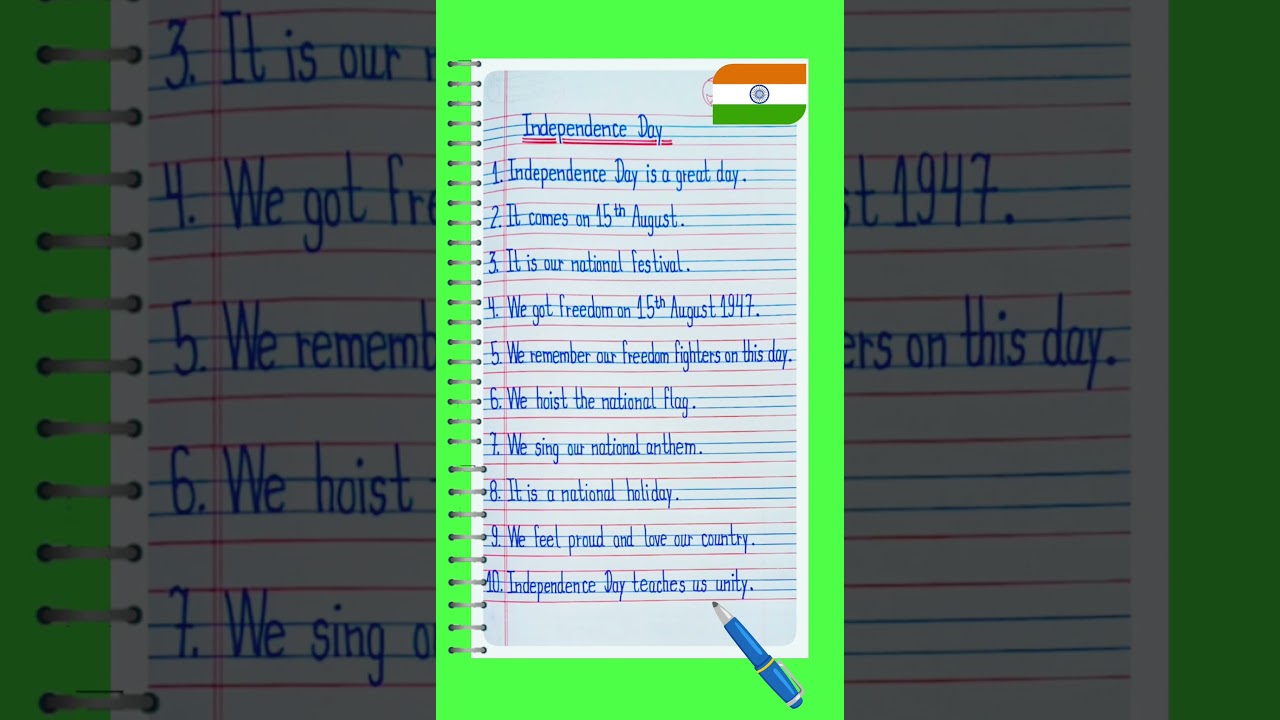 Independence Day
1. Independence Day is a great day.
2. It comes on 15th August.
3. It is our national festival.
4. We got freedom on 15th August 1947.
5. We remember our freedom fighters on this day.
6. We hoist the national flag.
7. We sing our national anthem.
8. It is a national holiday.
9. We feel proud and love our country.
10. Independence Day teaches us unity.
3. It is our
4. We got fre
t 1947.
5. We rememb
ers on this day.
6. We hoist
7. We sing o